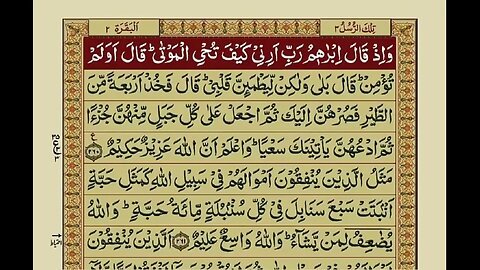 تِلْكَ الرُّسُلُ ٣
اَلْبَقَرَة ٢
وَاِذْ قَالَ اِبْرٰهٖمُ رَبِّ اَرِنِیْ كَیْفَ تُحْیِ الْمَوْتٰی ؕ قَالَ اَوَلَمْ
تُؤْمِنْ ؕ قَالَ بَلٰی وَلٰكِنْ لِّیَطْمَىِٕنَّ قَلْبِیْ ؕ قَالَ فَخُذْ اَرْبَعَةً مِّنَ
الطَّیْرِ فَصُرْهُنَّ اِلَیْكَ ثُمَّ اجْعَلْ عَلٰی كُلِّ جَبَلٍ مِّنْهُنَّ جُزْءًا
ثُمَّ ادْعُهُنَّ یَاْتِیْنَكَ سَعْیًا ؕ وَاعْلَمْ اَنَّ اللّٰهَ عَزِیْزٌ حَكِیْمٌ ﴿۲۶۰﴾
مَثَلُ الَّذِیْنَ یُنْفِقُوْنَ اَمْوَالَهُمْ فِیْ سَبِیْلِ اللّٰهِ كَمَثَلِ حَبَّةٍ
اَنْۢبَتَتْ سَبْعَ سَنَابِلَ فِیْ كُلِّ سُنْۢبُلَةٍ مِّائَةُ حَبَّةٍ ؕ وَاللّٰهُ
یُضٰعِفُ لِمَنْ یَّشَآءُ ؕ وَاللّٰهُ وَاسِعٌ عَلِیْمٌ ﴿۲۶۱﴾ اَلَّذِیْنَ یُنْفِقُوْنَ